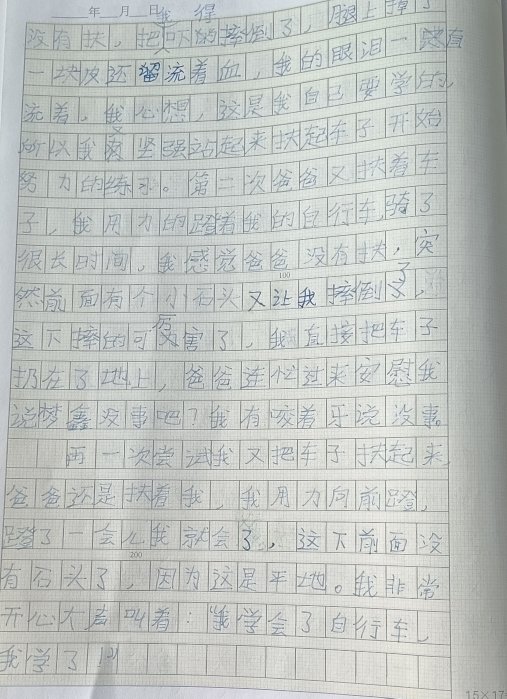 年 月 日
我 得
没有扶，把吓的摔倒了，腿上掉了
一块皮还留流着血，我的眼泪一直
流着，我心想，这是我自己要学的，
所以我又坚强站起来扶起车子开始
努力的练习。第二次爸爸又扶着车
子，我用力的蹬着我的自行车，骑了
很长时间，我感觉爸爸没有扶，突
100
然前面有个小石头又让我摔倒了，
厉
这下摔的可害了，我直接把车子
扔在了地上，爸爸连忙过来安慰我
说梦鑫没事吧？我有咬着牙说没事。
再一次尝试我又把车子扶起来，
爸爸还是扶着我，我用力向前蹬，
蹬了一会儿我就会了，这下前面没
200
有石头了，因为这是平地。我非常
开心大声叫着：“我学会了自行车，
我学了！”
15×17